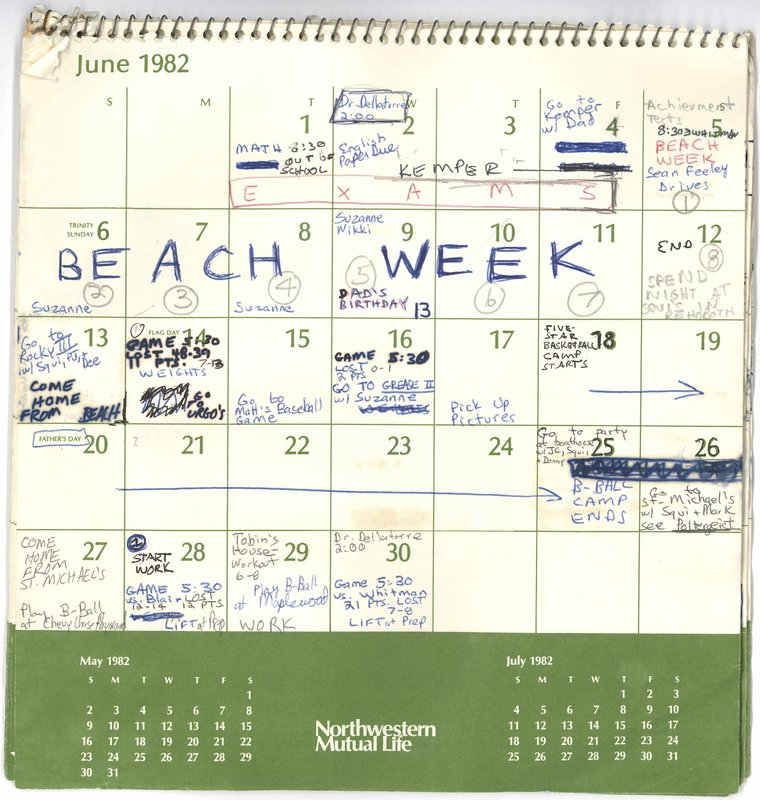 June 1982
S M T W T F S
1
MATH 8:30
OUT OF
SCHOOL
Dr. Dellatorre
2:00
2
English
Paper Due
3
KEMPER
Go to
Kemper
w/ Dad
4
Achievement
Tests
5
8:30
BEACH
WEEK
Sean Feeley
Drives
1
E X A M S
TRINITY
SUNDAY 6
7
8
Suzanne
Nikki
9
10
11
12
END
BEACH WEEK
2
3
4
5
6
7
8
Suzanne
Suzanne
DAD'S
BIRTHDAY 13
SPEND
NIGHT AT
IN
REHOBOTH
13
Go to
Rocky III
w/ Squi, PJ,
COME
HOME
FROM BEACH
FLAG DAY
14
GAME 5:30
LOST 48-39
11 PTS.
WEIGHTS
GO
TO
URGO'S
15
Go to
Matt's Baseball
Game
16
GAME 5:30
LOST 0-1
2 PTS
GO TO GREASE II
w/ Suzanne
17
Pick Up
Pictures
18
FIVE-
STAR
BASKETBALL
CAMP
STARTS
19
FATHER'S DAY
20
21
22
23
24
Go to party
at boathouse
w/ JC, Squi
25
B-BALL
CAMP
ENDS
26
Go to
St. Michael's
w/ Squi + Mark
see Poltergeist
COME
HOME
FROM
ST. MICHAEL'S
27
Play B-Ball
at Chevy Chase Playground
1
28
START
WORK
GAME 5:30
vs. Blair LOST
12-14 12 PTS.
LIFT at Prep
Tobin's
House-
Workout
6-8
29
Play B-Ball
at Maplewood
WORK
Dr. Dellatorre
2:00
30
Game 5:30
vs. Whitman
21 PTS. LOST
7-8
LIFT at Prep
May 1982
S M T W T F S
1
2 3 4 5 6 7 8
9 10 11 12 13 14 15
16 17 18 19 20 21 22
23 24 25 26 27 28 29
30 31
Northwestern
Mutual Life
July 1982
S M T W T F S
1 2 3
4 5 6 7 8 9 10
11 12 13 14 15 16 17
18 19 20 21 22 23 24
25 26 27 28 29 30 31